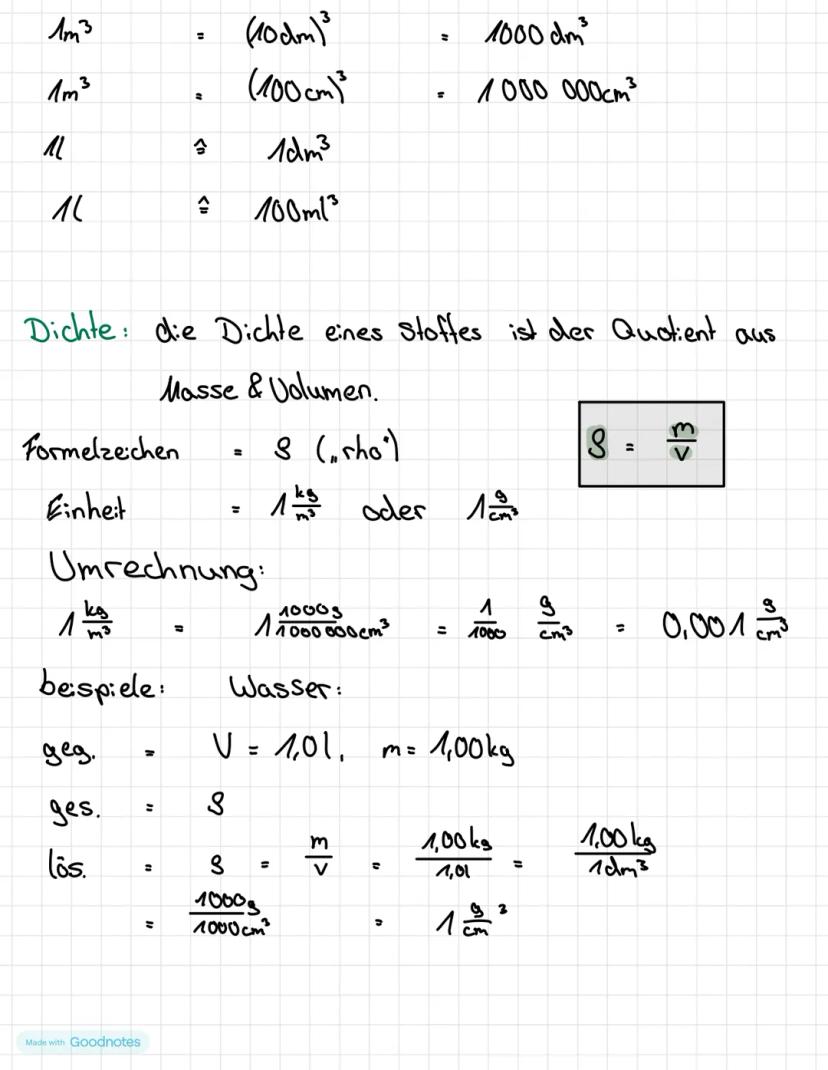 1m³ = (10dm)³ = 1000 dm³
1m³ = (100cm)³ = 1 000 000cm³
1l ≙ 1dm³
1l ≙ 100ml³
Dichte: die Dichte eines Stoffes ist der Quotient aus
Masse & Volumen.
ρ = m/V
Formelzeichen = ρ („rho“)
Einheit = 1 kg/m³ oder 1 g/cm³
Umrechnung:
1 kg/m³ = 1 1000g/1 000 000cm³ = 1/1000 g/cm³ = 0,001 g/cm³
beispiele: Wasser:
geg. = V = 1,0l, m = 1,00kg
ges. = ρ
lös. = ρ = m/V = 1,00kg/1,0l = 1,00kg/1dm³
= 1000g/1000cm³ = 1 g/cm ³
Made with Goodnotes